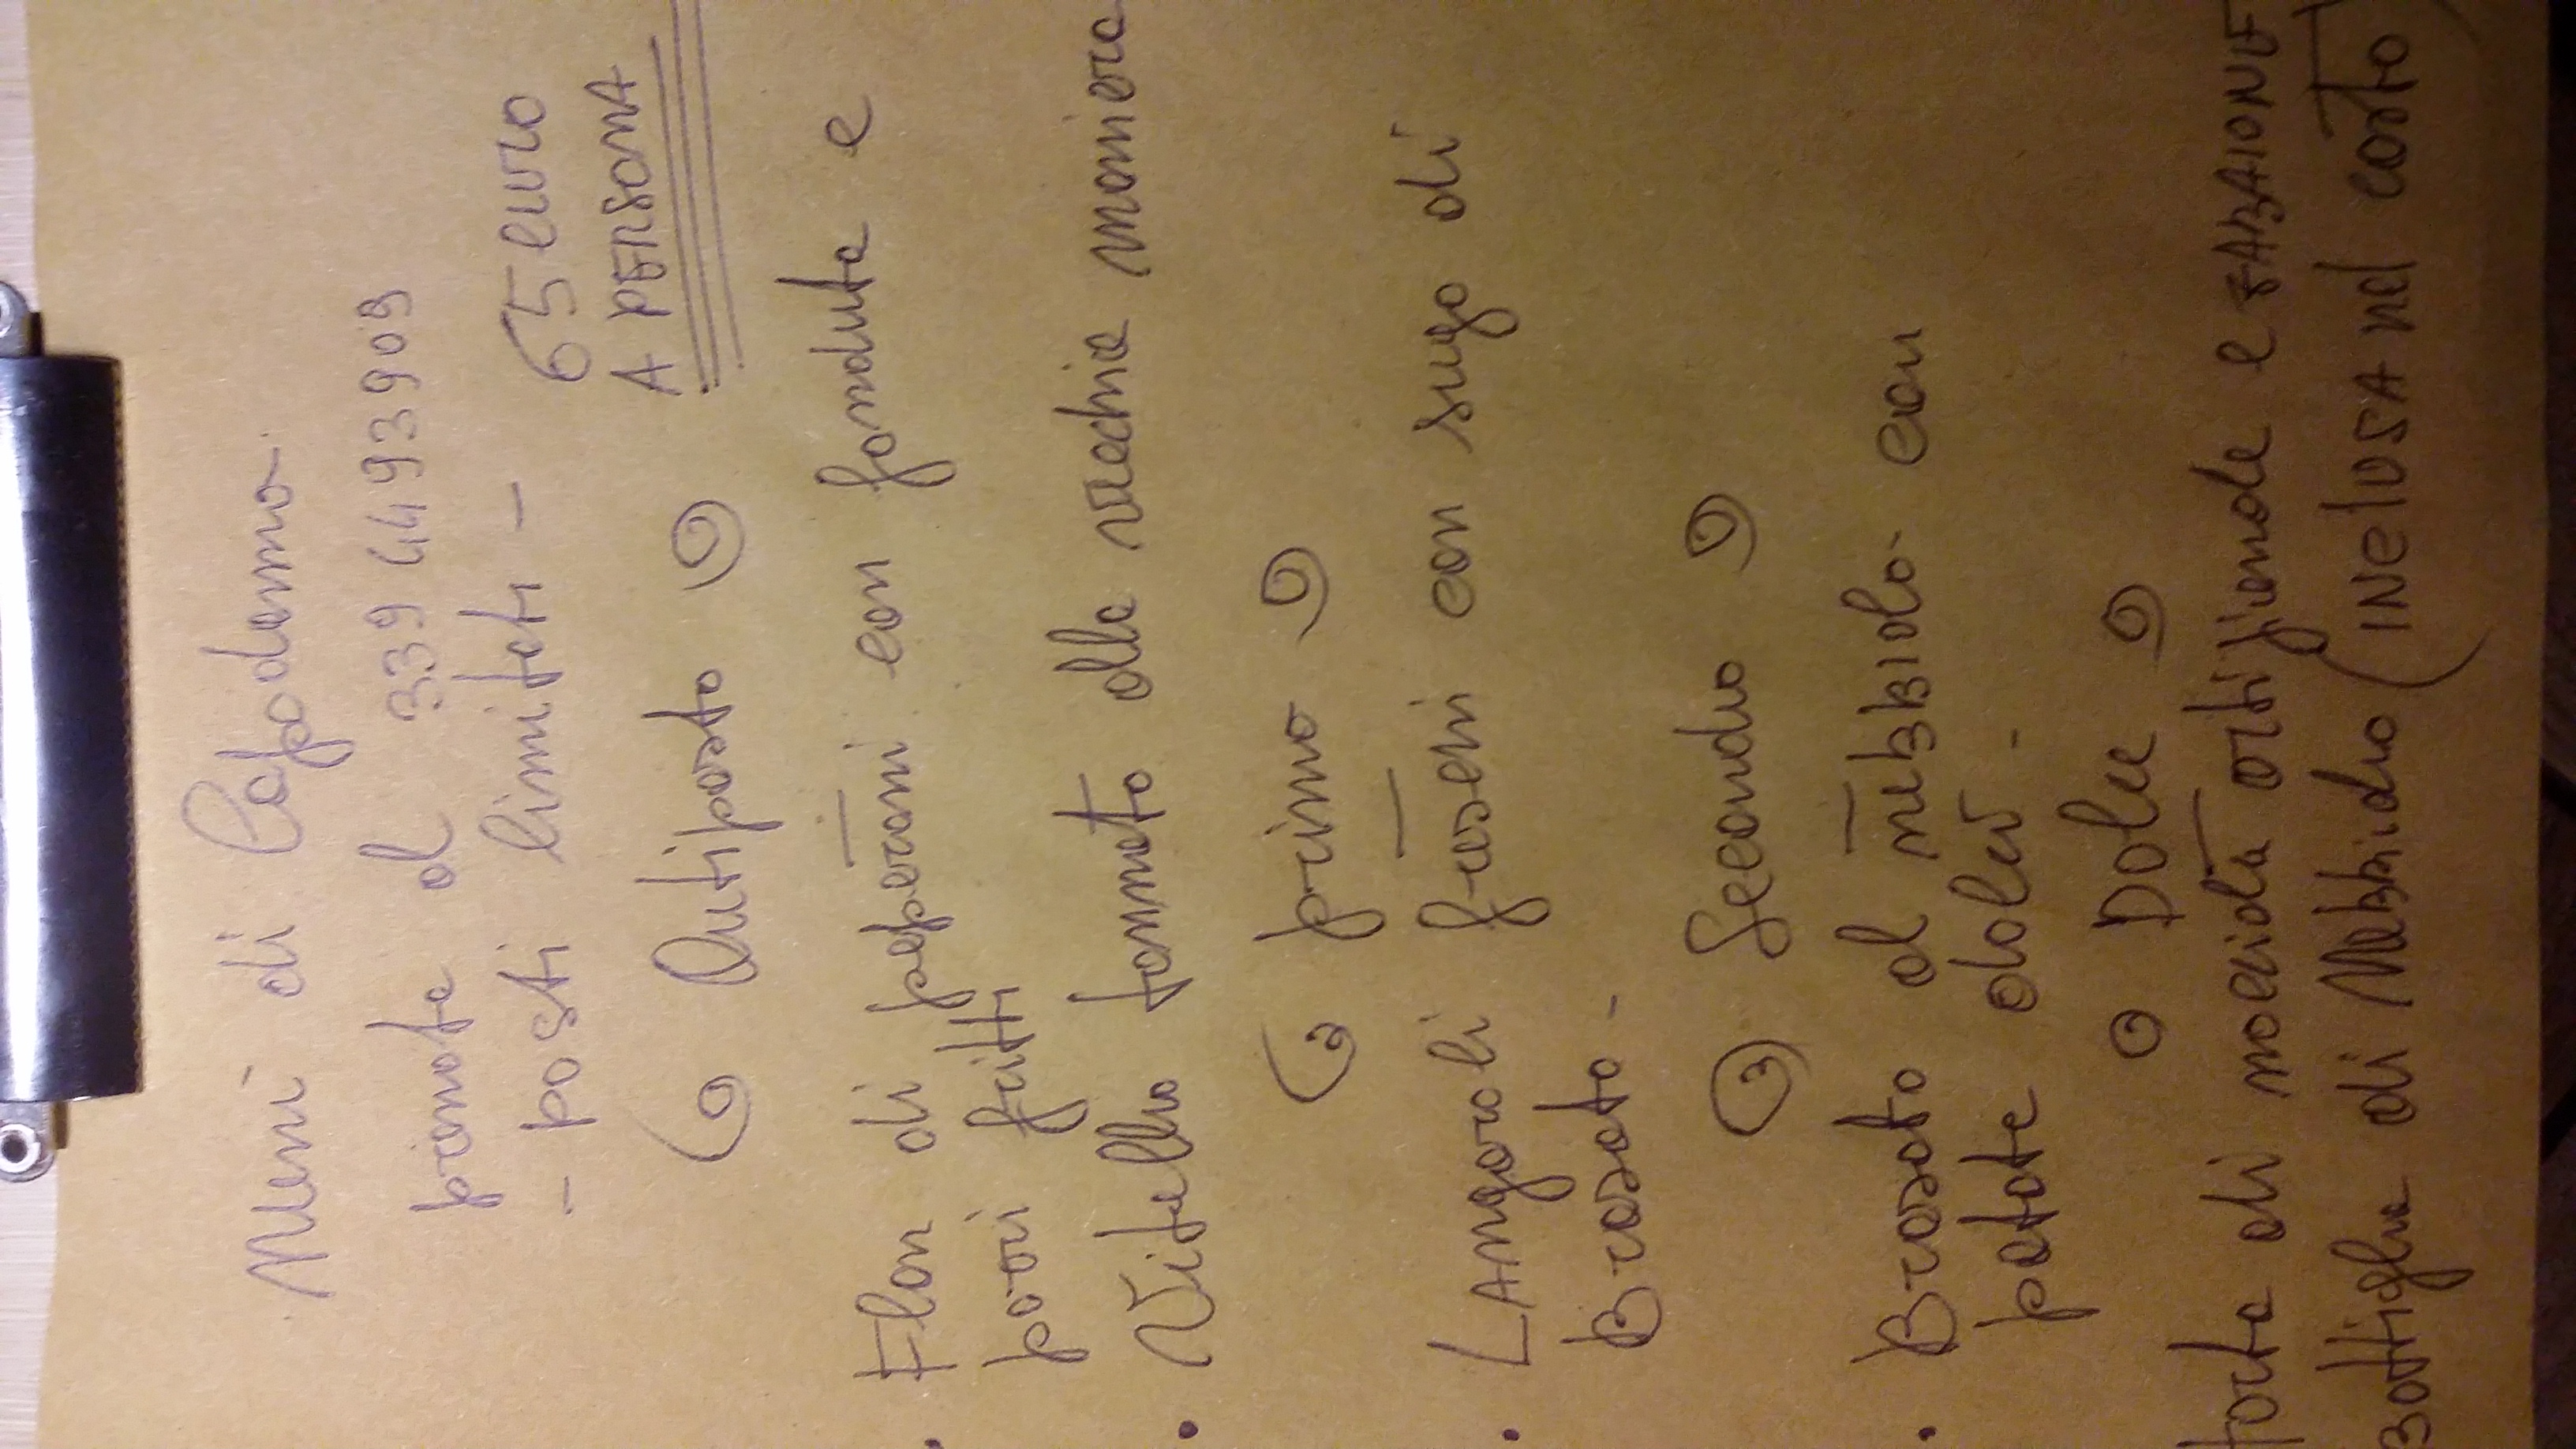 Menù di Capodanno
prenota al 339 4493909
- posti limitati - 65 euro
A PERSONA
Antipasto
• Flan di peperoni con fonduta e
porri fritti
• Vitello tonnato alla vecchia maniera
primo
• LAngaroli freschi con sugo di
Brasato -
Secondo
• Brasato al nebbiolo con
patate dolci -
Dolce
torta di nocciola artigianale e ZABAIONE
Bottiglia di Nebbiolo (INCLUSA nel costo)